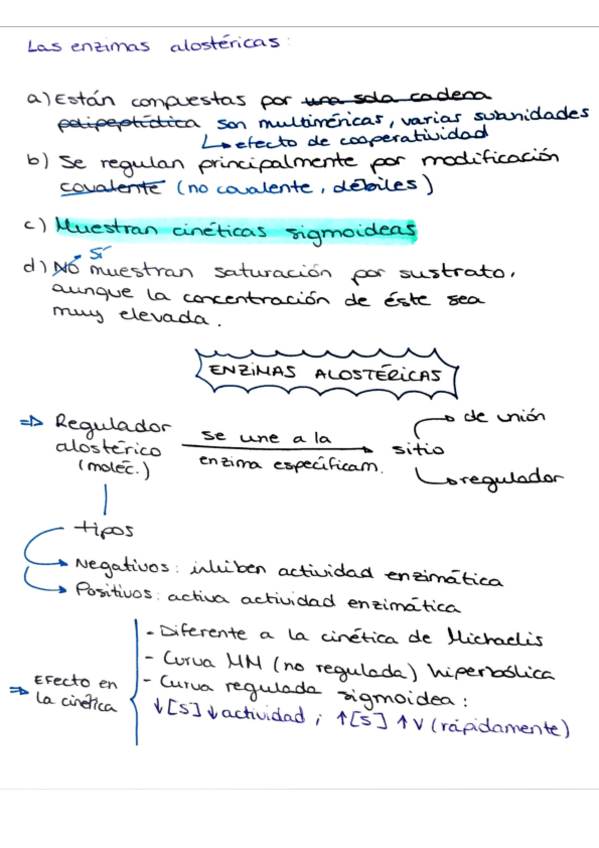 Las enzimas alostéricas:
a) Están compuestas por una sola cadena
polipeptídica son multiméricas, varias subunidades
↳ efecto de cooperatividad
b) Se regulan principalmente por modificación
covalente (no covalente, débiles)
c) Muestran cinéticas sigmoideas
Sí
d) NO muestran saturación por sustrato,
aunque la concentración de éste sea
muy elevada.
ENZIMAS ALOSTÉRICAS
⇒ Regulador
alostérico
(moléc.)
se une a la
enzima específicam.
sitio
de unión
regulador
tipos
Negativos: inhiben actividad enzimática
Positivos: activa actividad enzimática
⇒ Efecto en
la cinética
- Diferente a la cinética de Michaelis
- Curva MM (no regulada) hiperbólica
- Curva regulada sigmoidea:
↓[S] ↓actividad ; ↑[S] ↑V (rápidamente)